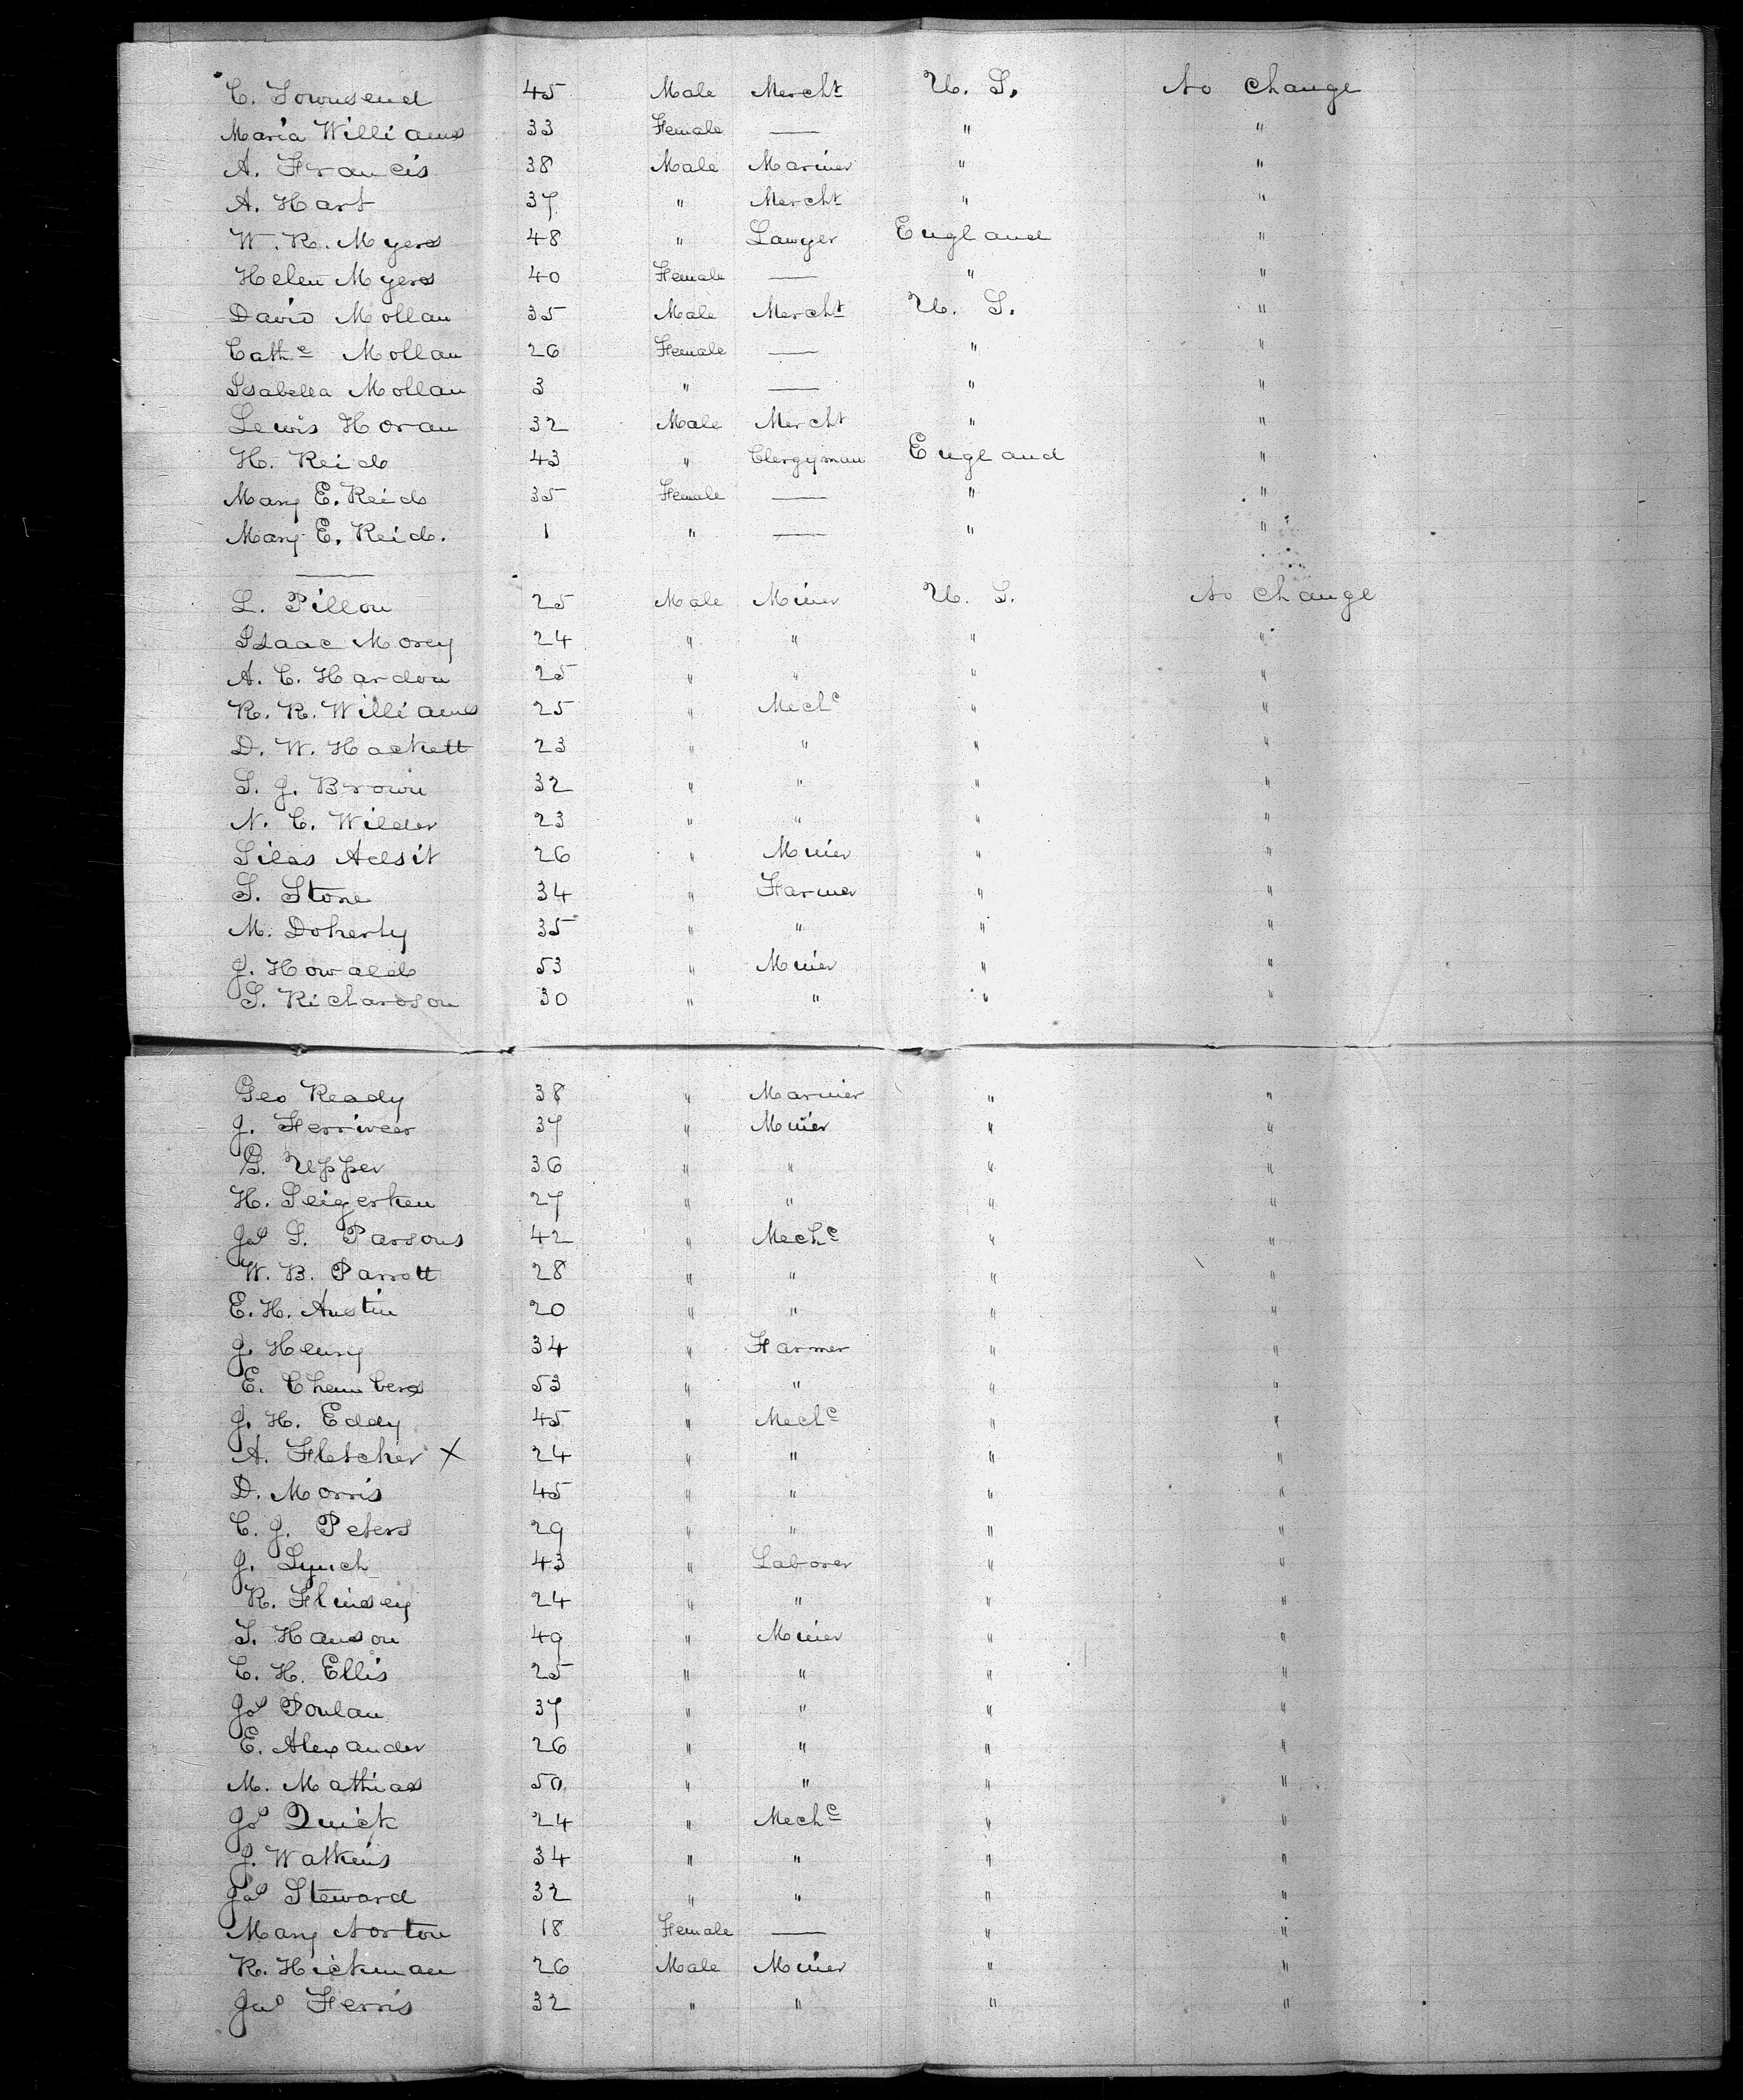 C. Townsend 45 Male Mercht U. S. No Change
Maria Williams 33 Female — " "
A. Francis 38 Male Mariner " "
A. Hart 37 " Mercht " "
W. R. Myers 48 " Lawyer England "
Helen Myers 40 Female — " "
David Mollan 35 Male Mercht U. S. "
Cathe Mollan 26 Female — " "
Isabella Mollan 3 " — " "
Lewis Horan 32 Male Mercht " "
H. Reid 43 " Clergyman England "
Mary E. Reid 35 Female — " "
Mary E. Reid. 1 " — " "
—
L. Pillon 25 Male Miner U. S. No Change
Isaac Morey 24 " " " "
A. C. Hardon 25 " " " "
R. R. Williams 25 " Mechc " "
D. W. Hackett 23 " " " "
S. J. Brown 32 " " " "
N. C. Wilder 23 " " " "
Silas Adsit 26 " Miner " "
S. Stone 34 " Farmer " "
M. Doherty 35 " " " "
J. Howald 53 " Miner " "
S. Richardson 30 " " " "
Geo Ready 38 " Mariner " "
J. 37 " Miner " "
G. Upper 36 " " " "
H. Seigerken 27 " " " "
Jas S. Parsons 42 " Mechc " "
W. B. Parrott 28 " " " "
E. H. Austin 20 " " " "
J. Henry 34 " Farmer " "
E. Chambers 53 " " " "
J. H. Eddy 45 " Mechc " "
A. Fletcher X 24 " " " "
D. Morris 45 " " " "
C. J. Peters 29 " " " "
J. Lynch 43 " Laborer " "
R. Flimsey 24 " " " "
S. Hanson 49 " Miner " "
C. H. Ellis 25 " " " "
Jos Poulan 37 " " " "
E. Alexander 26 " " " "
M. Mathias 50 " " " "
Jos Quick 24 " Mechc " "
J. Watkins 34 " " " "
Jas Steward 32 " " " "
Mary Norton 18 Female — " "
R. Hickman 26 Male Miner " "
Jas Ferris 32 " " " "